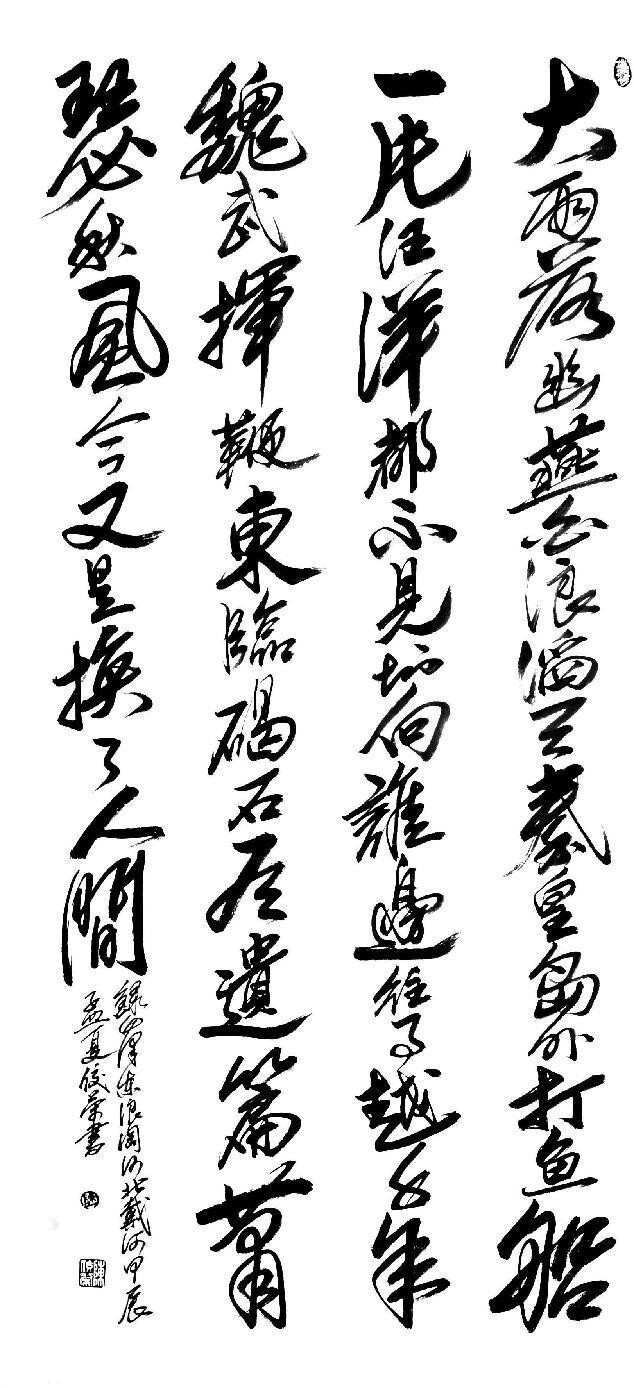 大雨落幽燕白浪滔天秦皇島外打鱼船
一片汪洋都不見知向誰邊往事越千年
魏武揮鞭東臨碣石有遺篇蕭
瑟秋風今又是換了人間
錄毛澤东浪淘沙北戴河甲辰
孟夏俊荣書